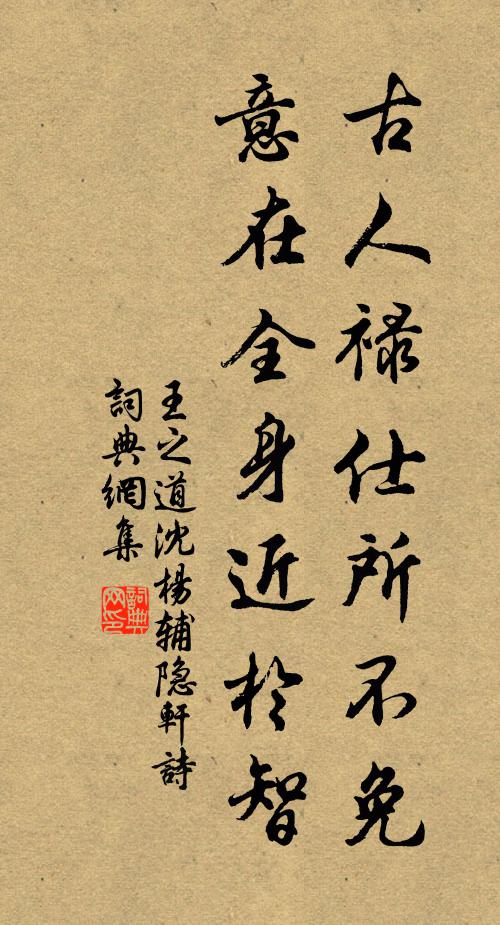 古人禄仕所不免
意在全身近於智
王之道沈楊輔隐軒詩
詞典網集
詞典网印